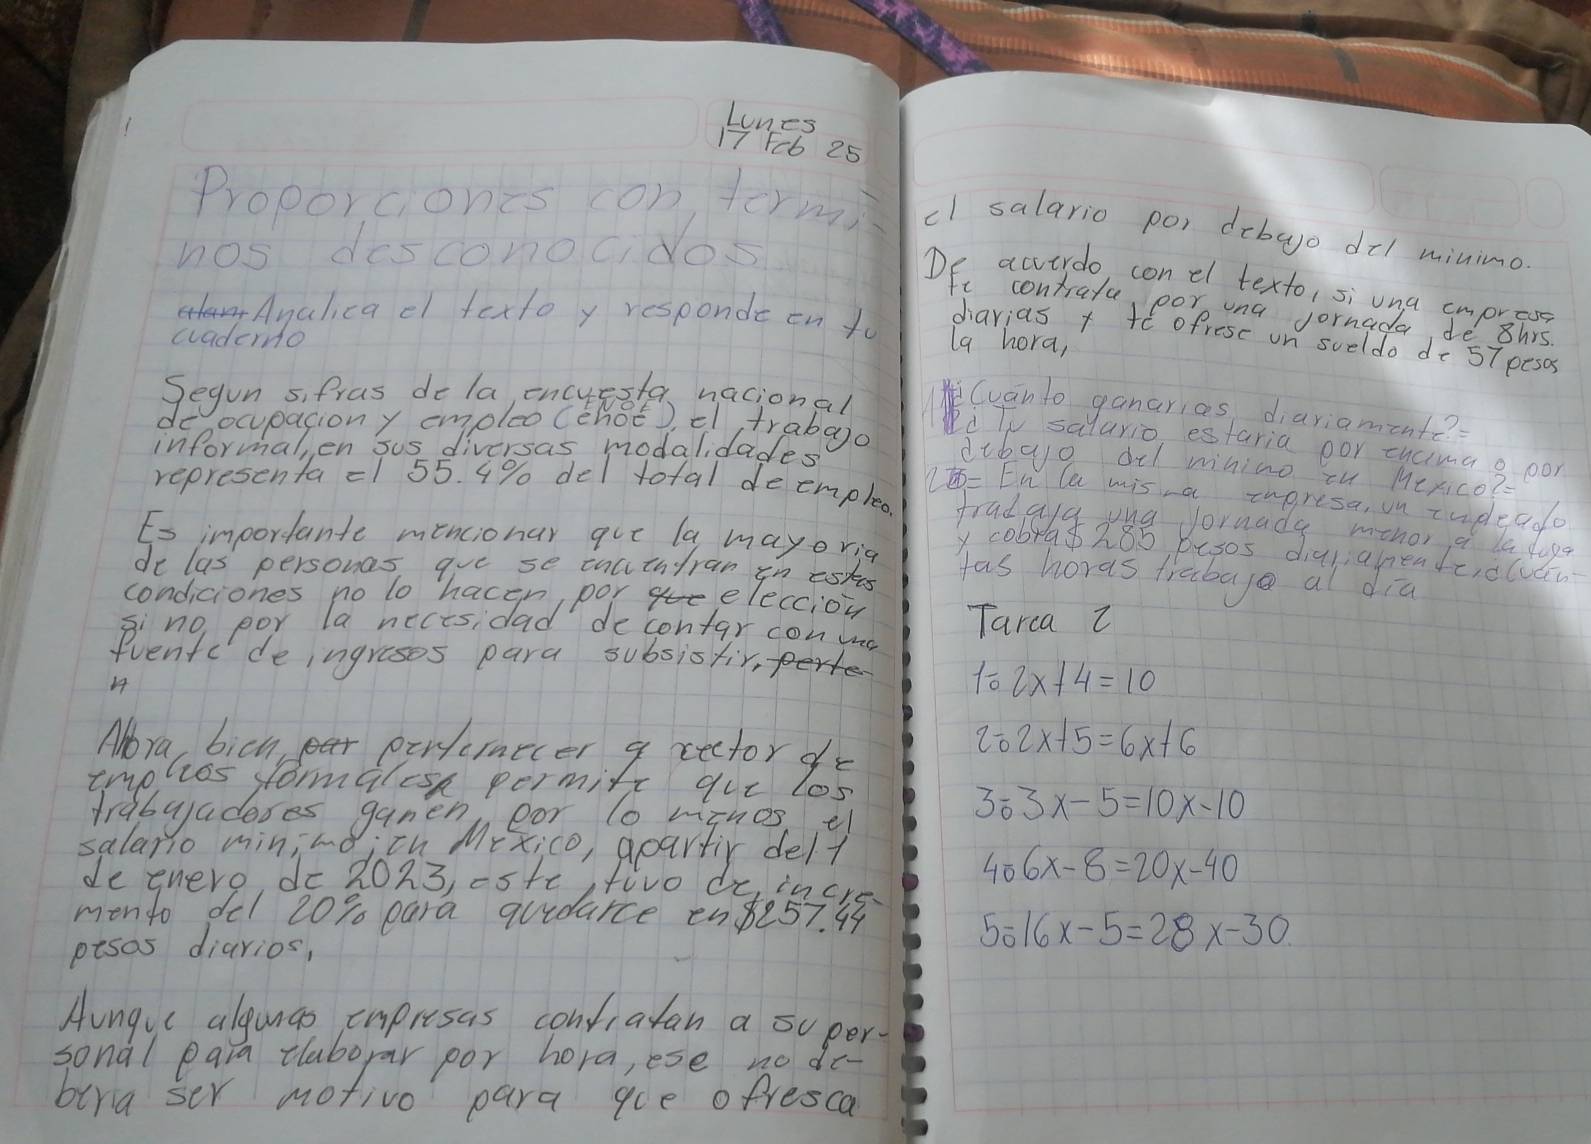 Lunes
17 Feb 25
Proporciones con termi-
nos desconocidos
Analica el texto y responde en tu
cuaderno
Segun sifras de la encuesta nacional
de ocupacion y empleo (enoe), el trabajo
informal, en sus diversas modalidades
representa el 55.4% del total de empleo.
Es importante mencionar que la mayoria
de las personas que se encuentran en estas
condiciones no lo hacen por que eleccion
si no por la necesidad de contar con una
fuente de ingresos para subsistir, perte
n
Ahora bien, par pertemecer a sector de
empleos formales permite que los
trabajadores ganen por lo menos el
salario minimo; en México, apartir del 1
de enero de 2023, este tuvo de incre-
mento del 20% para quedarce en $257.44
pesos diarios,
Aunque algunas empresas contratan a su per-
sonal para elaborar por hora, ese no de-
beria ser motivo para que ofresca
el salario por debajo del minimo.
De acuerdo con el texto, si una empresa
te contrata por una jornada de 8hrs.
diarias y te ofrese un sueldo de 57 pesos
la hora,
¿Cuánto ganarias diariamente?=
¿Tu salario estaria por encima o por
debajo del minino en Mexico?=
2= En la misma empresa, un empleado
trabaja una jornada menor a la tuya
y cobra $285 pesos diariamente, ¿cuán-
tas horas trabaja al dia
Tarea 2
1÷ 2x+4=10
2÷ 2x+5=6x+6
3÷ 3x-5=10x-10
4÷ 6x-8=20x-40
5÷ 16x-5=28x-30.